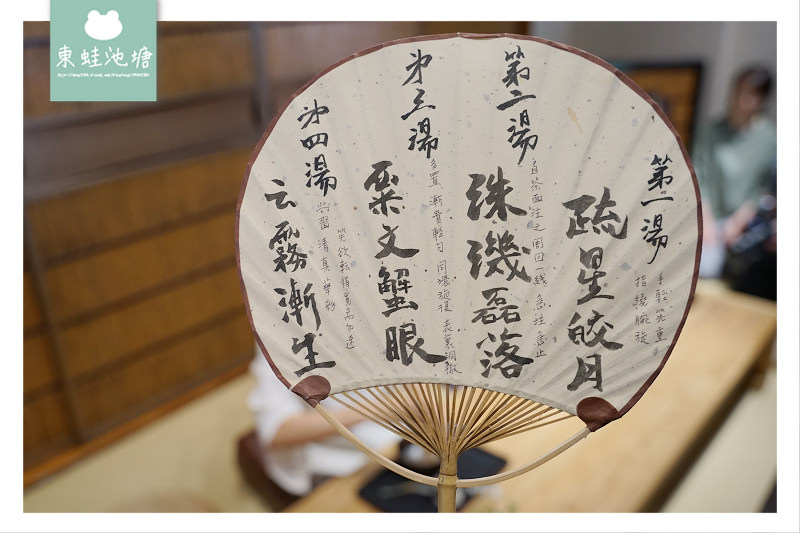 東蛙池塘
第一湯
手輕筅重
指繞腕旋
疏星皎月
第二湯
自茶面注之周回一线 急注急止
珠璣磊落
第三湯
多置 漸貴輕勻 同環旋復 表裏洞徹
粟文蟹眼
第四湯
尚嗇 清真華彩
筅欲転稍寬而勿速
云霧漸生